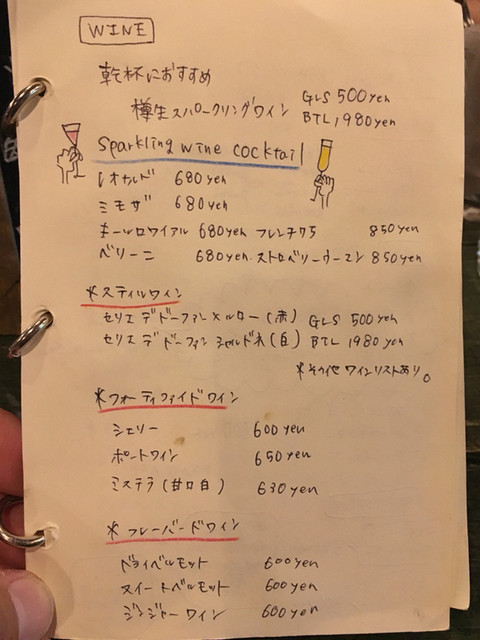 WINE
乾杯におすすめ
樽生スパークリングワイン GLS 500yen
BTL 1980yen
Sparkling wine cocktail
レオナルド 680yen
ミモザ 680yen
キールロワイアル 680yen フレンチ75 850yen
ベリーニ 680yen ストロベリーウーマン 850yen
*スティルワイン
セリエ デ ドーファン メルロー (赤) GLS 500yen
セリエ デ ドーファン シャルドネ (白) BTL 1980yen
*その他ワインリストあり。
*フォーティファイドワイン
シェリー 600yen
ポートワイン 650yen
ミステラ (甘口白) 630yen
*フレーバードワイン
ドライベルモット 600yen
スイートベルモット 600yen
ジンジャーワイン 600yen